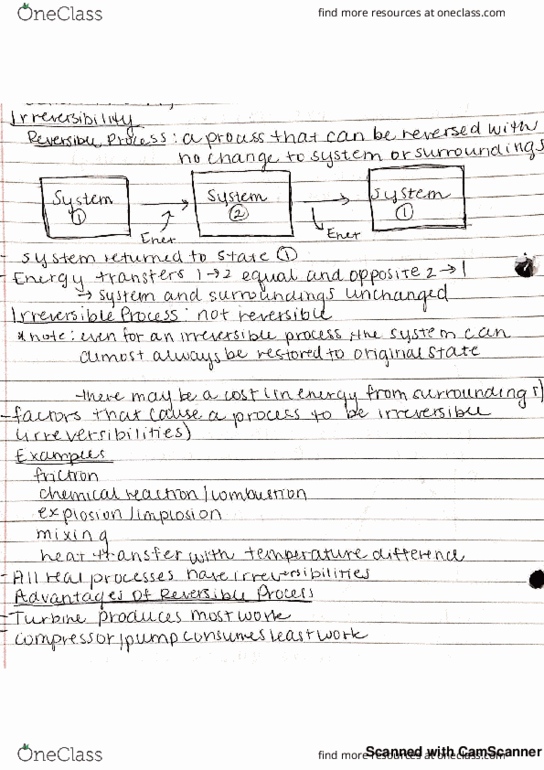 OneClass
find more resources at oneclass.com
Irreversibility
Reversible Process: a process that can be reversed with
no change to system or surroundings
System System System
① ② ①
Ener Ener
- System returned to state ①
- Energy transfers 1→2 equal and opposite 2→1
→ System and surroundings unchanged
Irreversible Process: not reversible
*note: even for an irreversible process, the system can
almost always be restored to original state
-there may be a cost (in energy from surroundings)
- factors that cause a process to be irreversible
(irreversibilities)
Examples
friction
chemical reaction/combustion
explosion/implosion
mixing
heat transfer with temperature difference
- All real processes have irreversibilities
Advantages of Reversible Process
- Turbine produces most work
- compressor/pump consumes least work
OneClass
find more resources at oneclass.com
Scanned with CamScanner